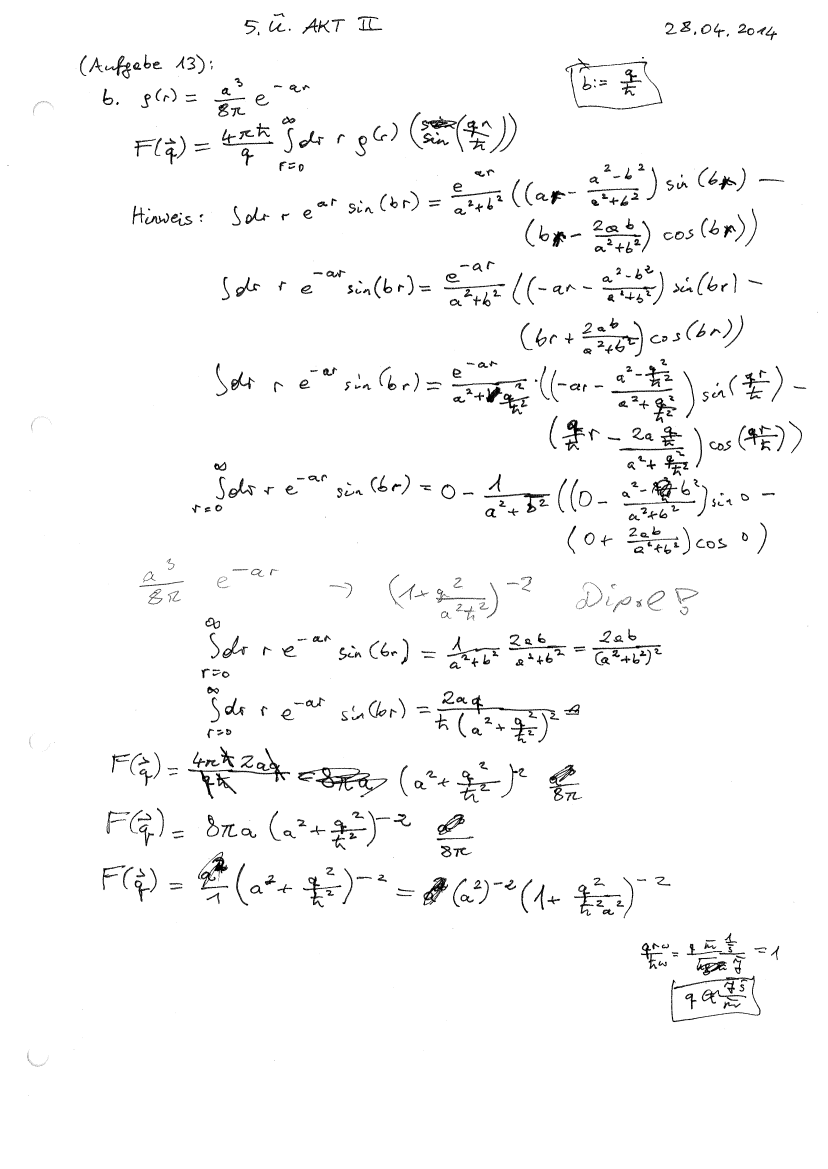 5. Ü. AKT II 28.04.2014
(Aufgabe 13):
b := q/ħ
b. ρ(r) = a³/8π e^(-ar)
F(q⃗) = 4πħ/q ∫_{r=0}^∞ dr r ρ(r) (sin(qr/ħ))
Hinweis: ∫dr r e^(ar) sin(br) = e^(ar)/(a²+b²) ((ar - (a²-b²)/(a²+b²)) sin(br) —
(br - 2ab/(a²+b²)) cos(br))
∫dr r e^(-ar) sin(br) = e^(-ar)/(a²+b²) ((-ar - (a²-b²)/(a²+b²)) sin(br) —
(br + 2ab/(a²+b²)) cos(br))
∫dr r e^(-ar) sin(br) = e^(-ar)/(a²+q²/ħ²) · ((-ar - (a²-q²/ħ²)/(a²+q²/ħ²)) sin(qr/ħ) —
(q/ħ r - (2a q/ħ)/(a²+q²/ħ²)) cos(qr/ħ))
∫_{r=0}^∞ dr r e^(-ar) sin(br) = 0 - 1/(a²+b²) ((0 - (a²-b²)/(a²+b²)) sin 0 —
(0 + 2ab/(a²+b²)) cos 0)
a³/8π e^(-ar) → (1+q²/(a²ħ²))^(-2) Dipol!
∫_{r=0}^∞ dr r e^(-ar) sin(br) = 1/(a²+b²) 2ab/(a²+b²) = 2ab/(a²+b²)²
∫_{r=0}^∞ dr r e^(-ar) sin(br) = 2aq/(ħ(a²+q²/ħ²)²)
F(q⃗) = 4πħ 2aq/(qħ) (a²+q²/ħ²)^(-2) /8π
F(q⃗) = 8πa (a²+q²/ħ²)^(-2) /8π
F(q⃗) = /1 (a²+q²/ħ²)^(-2) = (a²)^(-2) (1+q²/(ħ²a²))^(-2)
qrω/ħω = q m 1/s / J = 1
q J s/m